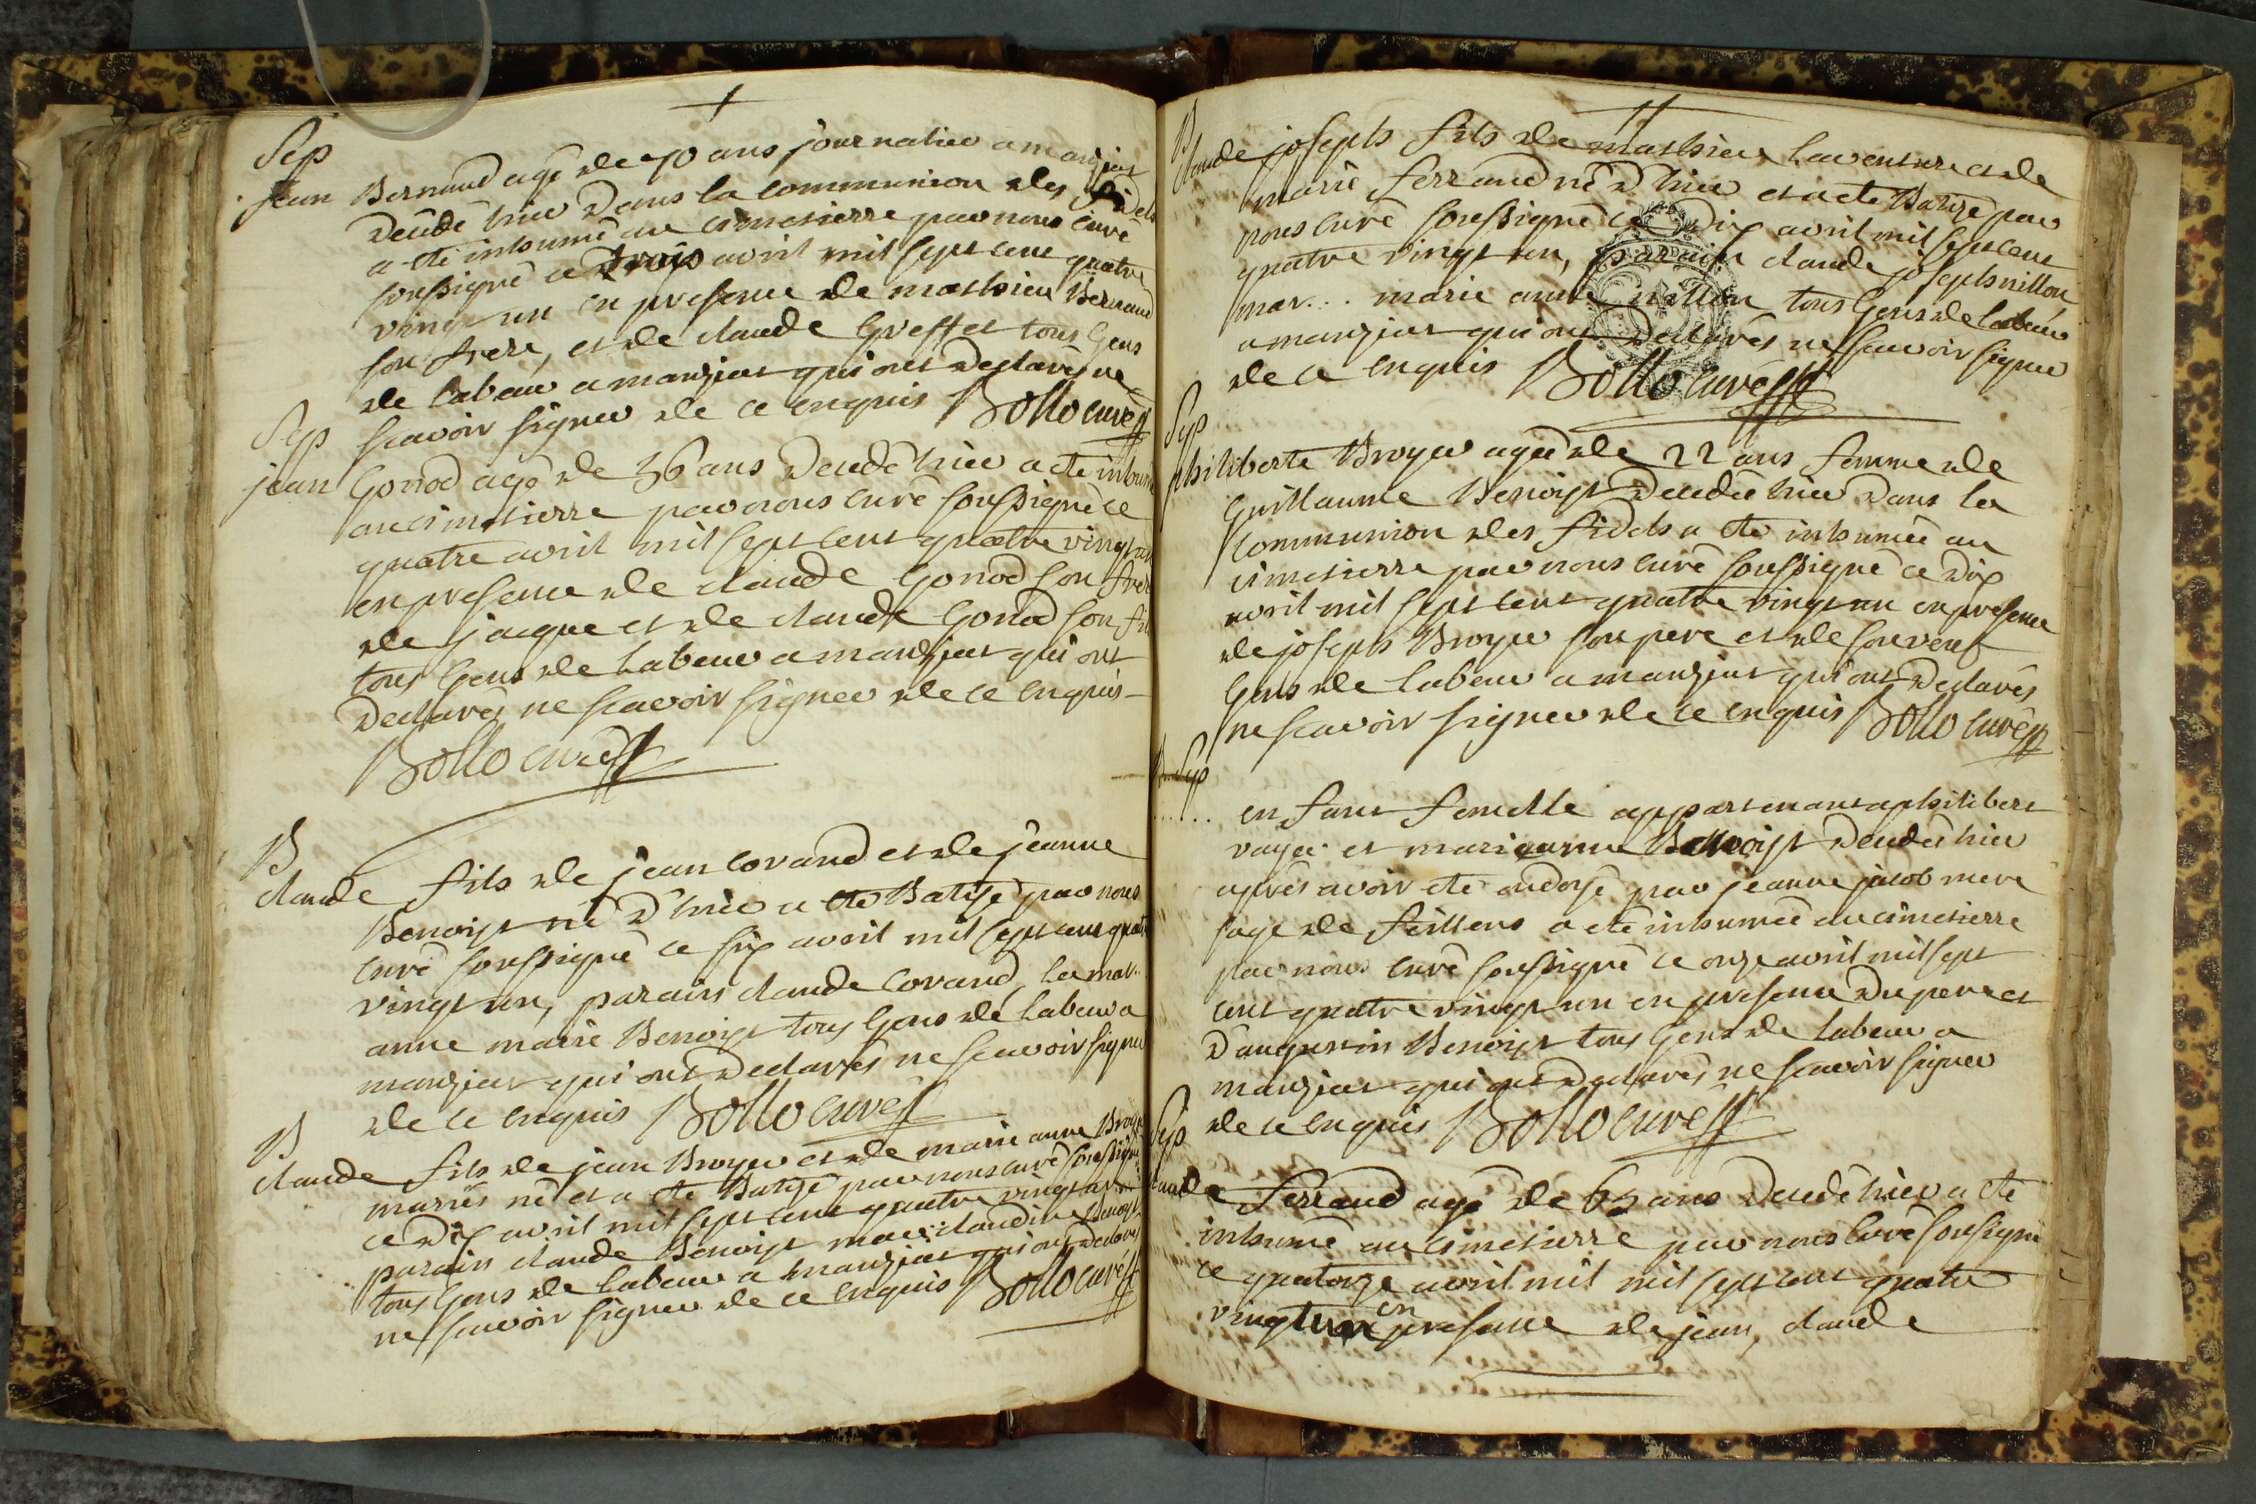 Sep
jean Bernaud agé de 70 ans journalier a manziat
decedé hier dans la communion des fidels
a eté inhumé au cimetierre par nous curé
soussigné ce trois avril mil sept cent quatre
vingt un en presence de mathieu Bernaud
son frere, et de claude Greffet tous gens
de labeur a manziat qui ont declarés ne
scavoir signer de ce enquis Bollo curé
Sep
jean Gonod agé de 36 ans decedé hier a eté inhumé
au cimetierre par nous curé soussigné ce
quatre avril mil sept cent quatre vingt un
en presence de claude Gonod son frere
de jacque et de claude Gonod son fils
tous gens de labeur a manziat qui ont
declarés ne scavoir signer de ce enquis
Bollo curé
B
claude fils de jean Corand et de jeanne
Benoist né d'hier a eté Batisé par nous
curé soussigné ce six avril mil sept cent quatre
vingt un, parain claude Corand, la mar..
anne marie Benoist tous gens de labeur a
manziat qui ont declarés ne scavoir signer
de ce enquis Bollo curé
B
claude fils de jean Broyer et de marie anne Broyer
mariés né et a eté Batisé par nous curé soussigné
ce dix avril mil sept cent quatre vingt un
parain claude Benoist mar.. claudine Benoist
tous gens de labeur a manziat qui ont declarés
ne scavoir signer de ce enquis Bollo curé
B
claude joseph fils de mathieu Laventure et de
marie ferrand né d'hier et a eté Batizé par
nous curé soussigné ce dix avril mil sept cent
quatre vingt un, parain claude joseph nillon
mar... marie anne nillon tous gens de labeur
a manziat qui ont declarés ne scavoir signer
de ce enquis Bollo curé
Sep
philiberte Broyer agée de 22 ans femme de
Guillaume Benoist decedée hier dans la
communion des fidels a eté inhumée au
cimetierre par nous curé soussigné ce dix
avril mil sept cent quatre vingt un en presence
de joseph Broyer son pere et de son veuf
gens de labeur a manziat qui ont declarés
ne scavoir signer de ce enquis Bollo curé
Sep
....... enfant femelle appartenant a philibert
voyer et marie anne Benoist decedée hier
apres avoir eté ondoyé par jeanne jacob mere
sage de feillens a eté inhumée au cimetierre
par nous curé soussigné ce onze avril mil sept
cent quatre vingt un en presence du pere et
d'augustin Benoist tous gens de labeur a
manziat qui ont declarés ne scavoir signer
de ce enquis Bollo curé
Sep
claude ferrand agé de 63 ans decedé hier a eté
inhumé au cimetierre par nous curé soussigné
ce quatorze avril mil mil sept cent quatre
vingt un en presence de jean, claude